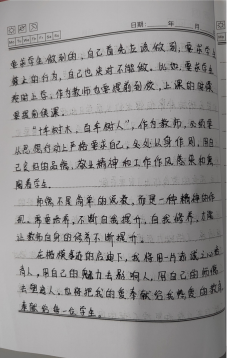 日期: 年 月
要求学生做到的，自己首先应该做到，要求学生
禁止的行为，自己也坚决不能做。比如，要求学生
按时上学，作为教师也要提前到校，上课的时候
要提前候课。
“十年树木，百年树人”，作为教师，必须要
从思想行动上严格要求自己，处处以身作则，用自
己良好的品格、敬业精神和工作作风感染和发
展着学生。
师德不是简单的说教，而是一种精神的体
现。需要培养，不断自我提升，自我修养，才能
让教师自身的修养不断提升。
在楷模事迹的启迪下，我将用一片赤诚之心
育人，用自己的魅力去影响人，用自己的师德
去塑造人。也将把我的青春献给我热爱的教育
奉献给每一位学生。